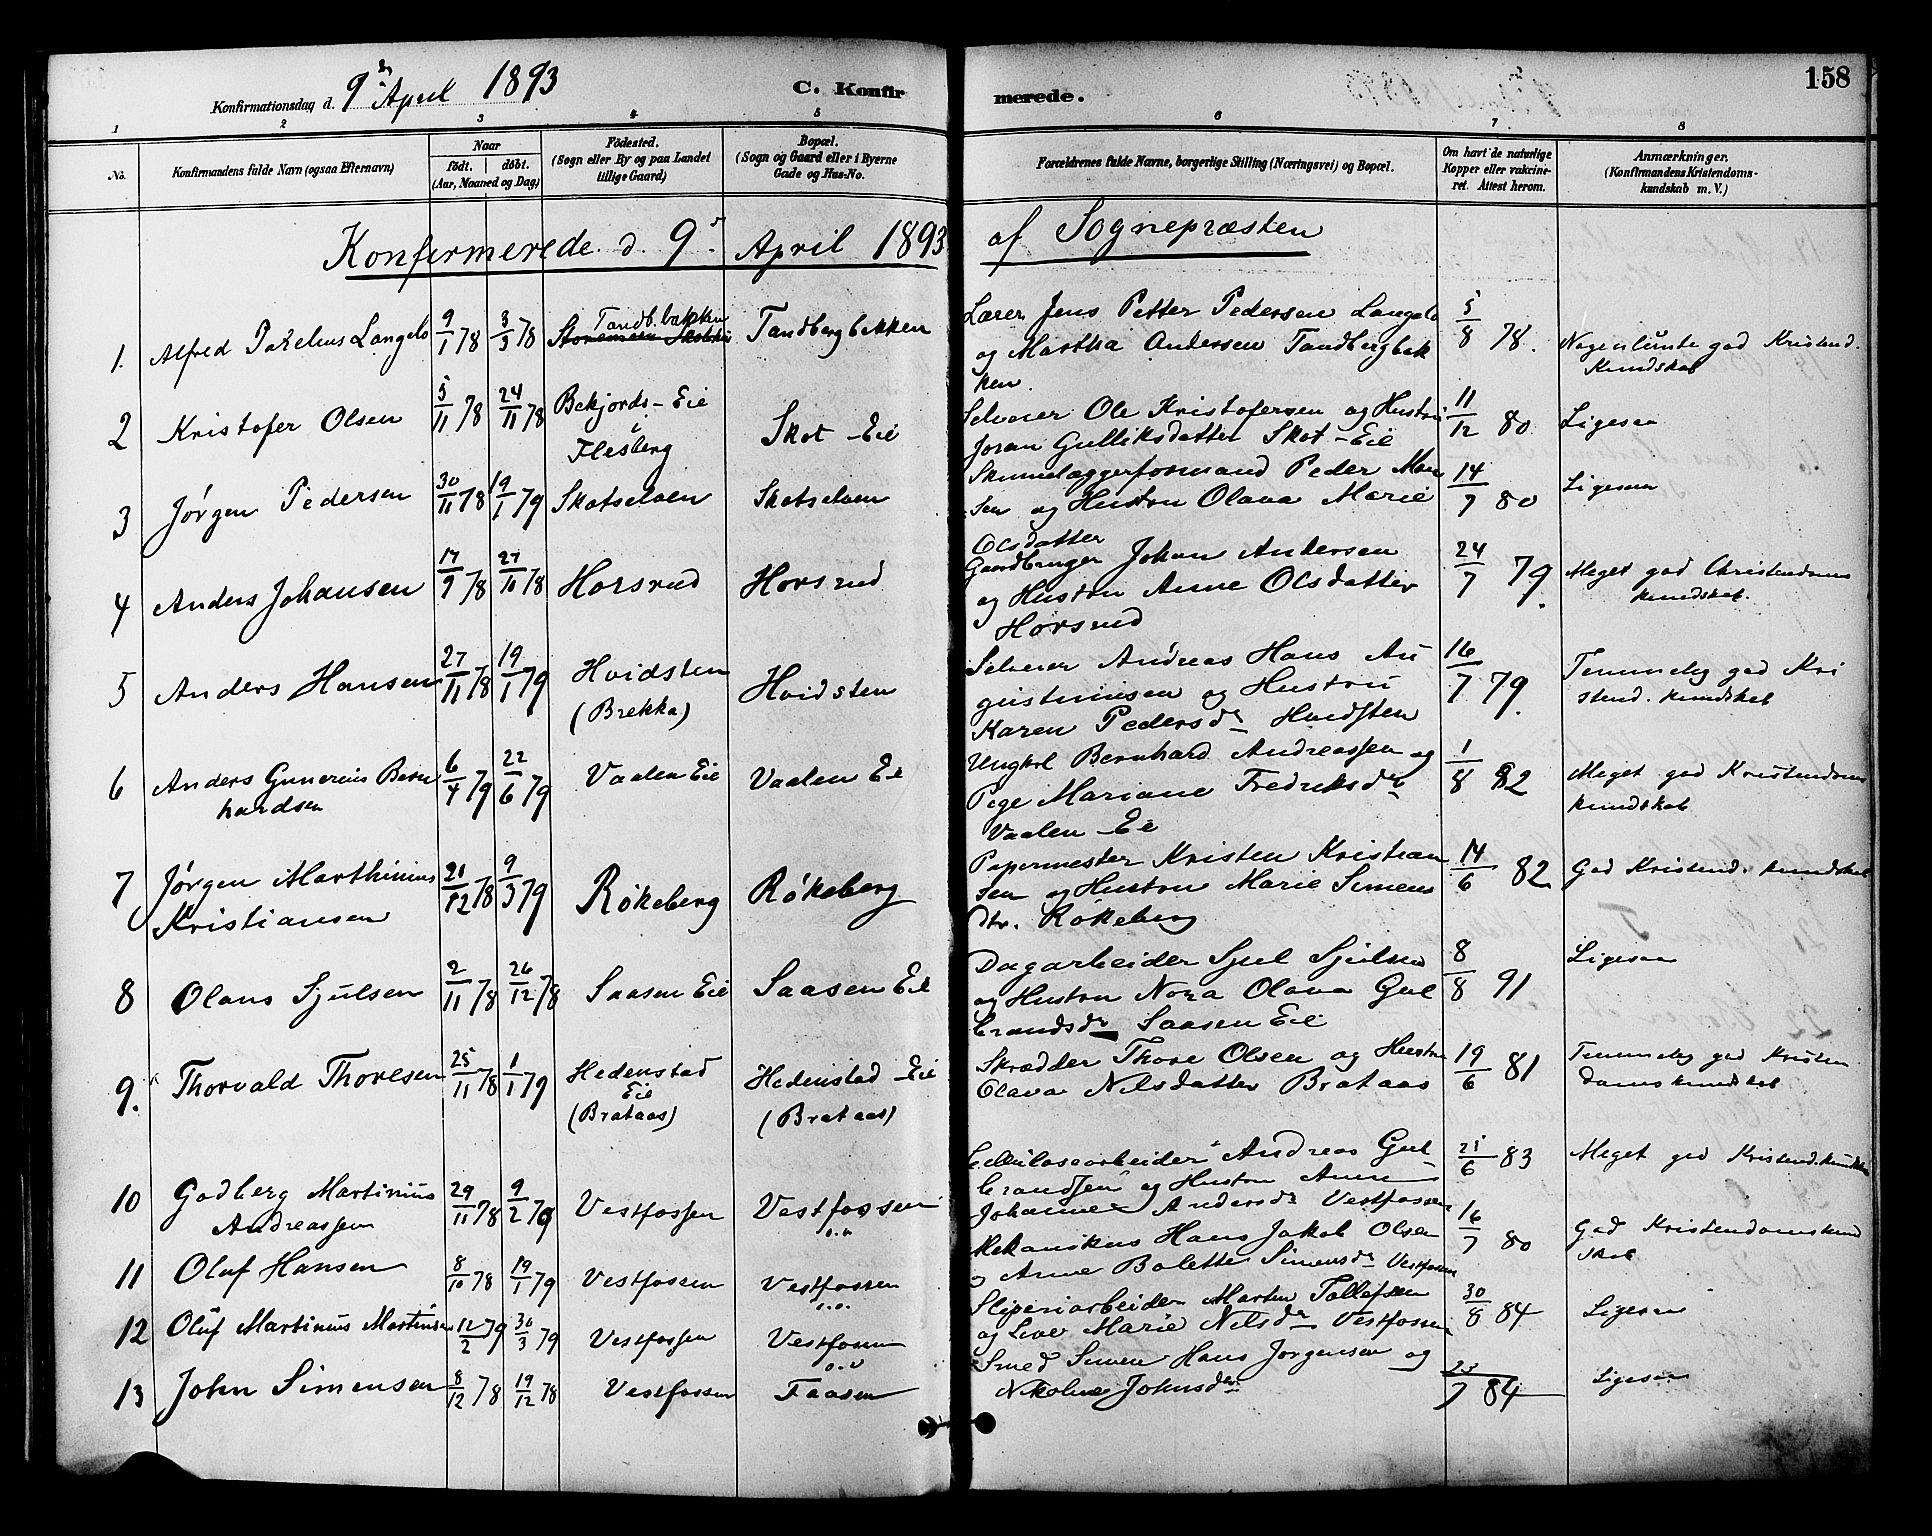 158
Konfirmationsdag d. 9de April 1893
C. Konfirmerede.
1 2 3 4 5 6 7 8
No. Konfirmandens fulde Navn (ogsaa Efternavn) Naar født. døbt. (Aar, Maaned og Dag) Fødested. (Sogn eller By og paa Landet tillige Gaard) Bopæl. (Sogn og Gaard eller i Byerne Gade og Hus-No. Forældrenes fulde Navne, borgerlige Stilling (Næringsvei) og Bopæl. Om havt de naturlige Kopper eller vaccineret. Attest herom. Anmærkninger. (Konfirmandens Kristendomskundskab m. V.)
Konfirmerede d. 9de April 1893 af Sognepræsten
1. Alfred Langelo 9/1 78 3/3 78 Tandb.bakken Tandbergbakken Lærer Jens Petter Pedersen Langelo 5/8 78. Nogenlunde god Kristend.
og Martha Andersen Tandbergbak kundskab
ken.
2 Kristofer Olsen 5/11 78 24/11 78 Bekjords-Eie i Flesberg Skot-Eie Selveier Ole Kristofersen og Hustru 11/12 80 Ligesaa
Joran Gulliksdatter Skot-Eie
3 Jørgen Pedersen 30/11 78 19/1 79 Skotselven Skotselven formand Peder 14/7 80 Ligesaa
sen og Hustru Olava Marie
Olsdatter
4 Anders Johansen 17/9 78 27/10 78 Horsrud Horsrud Gaardbruger Johan Andersen 24/7 79. Meget god Christendoms
og Hustru Anne Olsdatter kundskab.
Horsrud
5 Anders Hansen 27/11 78 19/1 79 Hvidsten (Brekka) Hvidsten Selveier Andreas Hans Au 16/7 79. Temmelig god Kri
gustinusen og Hustru stend. kundskab
Karen Pedersdr Hvidsten
6 Anders Gunerius Bern 6/4 79 22/6 79 Vaalen Eie Vaalen Eie Ungkrl Bernhard Andreassen og 1/8 82 Meget god Kristendoms
hardsen Pige Mariane Fredriksdr kundskab
Vaalen Eie
7 Jørgen Marthinius 21/12 78 9/3 79 Røkeberg Røkeberg Papermester Kristen Kristian 14/6 82 God Kristend. kundskab
Kristiansen sen og Hustru Marie Simens
dtr. Røkeberg
8 Olaus Sjulsen 2/11 78 26/12 78 Saasen Eie Saasen Eie Dagarbeider Sjul Sjulsen 8/8 91 Ligesaa
og Hustru Nora Olava Gul
brandsdr Saasen Eie
9. Thorvald Thoresen 25/11 78 1/1 79 Hedenstad Eie (Brataas) Hedenstad-Eie (Brataas) Skrædder Thore Olsen og Hustru 19/6 81 Temmelig god Kristen
Olava Nilsdatter Brataas domskundskab
10 Godberg Martinius 29/11 78 9/2 79 Vestfossen Vestfossen Cellulosearbeider Andreas Gul 21/6 83 Meget god Kristend.kundskab
Andreassen brandsen og Hustru Anne
Johanne Andersdr Vestfossen
11 Olaf Hansen 8/10 78 19/1 79 Vestfossen Vestfossen Mekanikus Hans Jakob Olsen 16/7 80 God Kristendomskund
o Anne Bolette Simensdr Vestfossen skab
12 Oluf Martinius Martinsen 12/2 79 30/3 79 Vestfossen Vestfossen Sliperiarbeider Marten Tollefsen 30/8 84 Ligesaa
og Marie Nilsdr Vestfossen
13 John Simensen 8/12 78 19/12 78 Vestfossen Faasen Smed Simen Hans Jørgensen og 23/7 84 Ligesaa
Nikoline Johnsdr